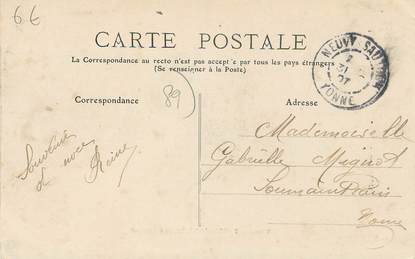 6.€
CARTE POSTALE
La Correspondance au recto n'est pas acceptée par tous les pays étrangers
(Se renseigner à la Poste)
NEUVY SAUTOUR
YONNE
Correspondance
89
Adresse
Souvenir
de noce
Reine
Mademoiselle
Gabrielle Mignot
Yonne